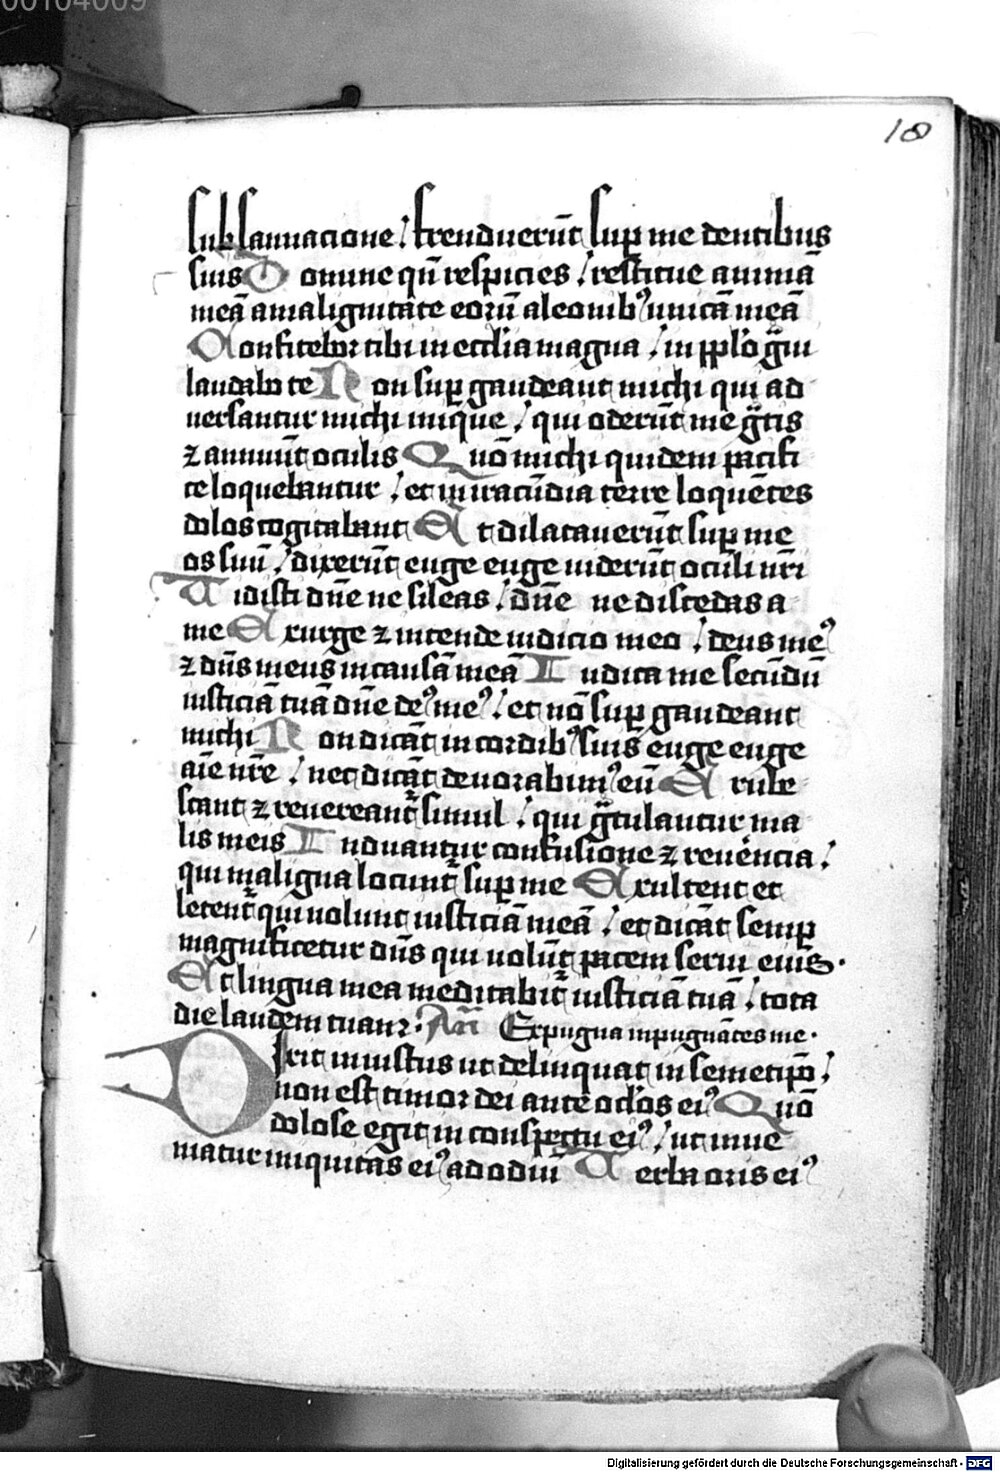 00104009
18
subsannacione / frenduerūt sup me dentibus
suis Domine qn̄ respicies / restitue animā
meā amalignitate eorū aleonibꝰ unicā meā
Confitebor tibi in ecclia magna / in pplo gͣui
laudabo te Non sup gaudeant michi qui ad
uersantur michi inique / qui oderūt me gͣtis
⁊ annuūt oculis Quō michi quidem pacifi
ce loquebantur / et in iracūdia terre loquētes
dolos cogitabant Et dilatauerūt sup me
os suū / dixerūt euge euge uiderūt oculi nr̄i
Uidisti dn̄e ne sileas / dn̄e ne discedas a
me Exurge ⁊ intende iudicio meo / deus meꝰ
⁊ dn̄s meus in causā meā Iudica me secūdū
iusticiā tuā dn̄e deꝰ meꝰ / et nō sup gaudeant
michi Non dicāt in cordibꝰ suis euge euge
aīe nr̄e / nec dicāt deuorabimꝰ eū Erube
scant ⁊ reuereant̄ simul / qui gͣtulantur ma
lis meis Induantur confusione ⁊ reuēncia /
qui maligna locunt̄ sup me Exultent et
letent̄ qui uolunt iusticiā meā / et dicāt semp
magnificetur dn̄s qui uolūt pacem serui eius.
Et lingua mea meditabit̄ iusticiā tuā / tota
die laudem tuam: An̄ Expugna inpugnātes me.
Dixit iniustus ut delinquat in semetipō /
non est timor dei ante oclōs eiꝰ Quō
dolose egit in conspectu eiꝰ / ut inue
niatur iniquitas eiꝰ ad odiū Uerba oris eiꝰ
Digitalisierung gefördert durch die Deutsche Forschungsgemeinschaft - DFG